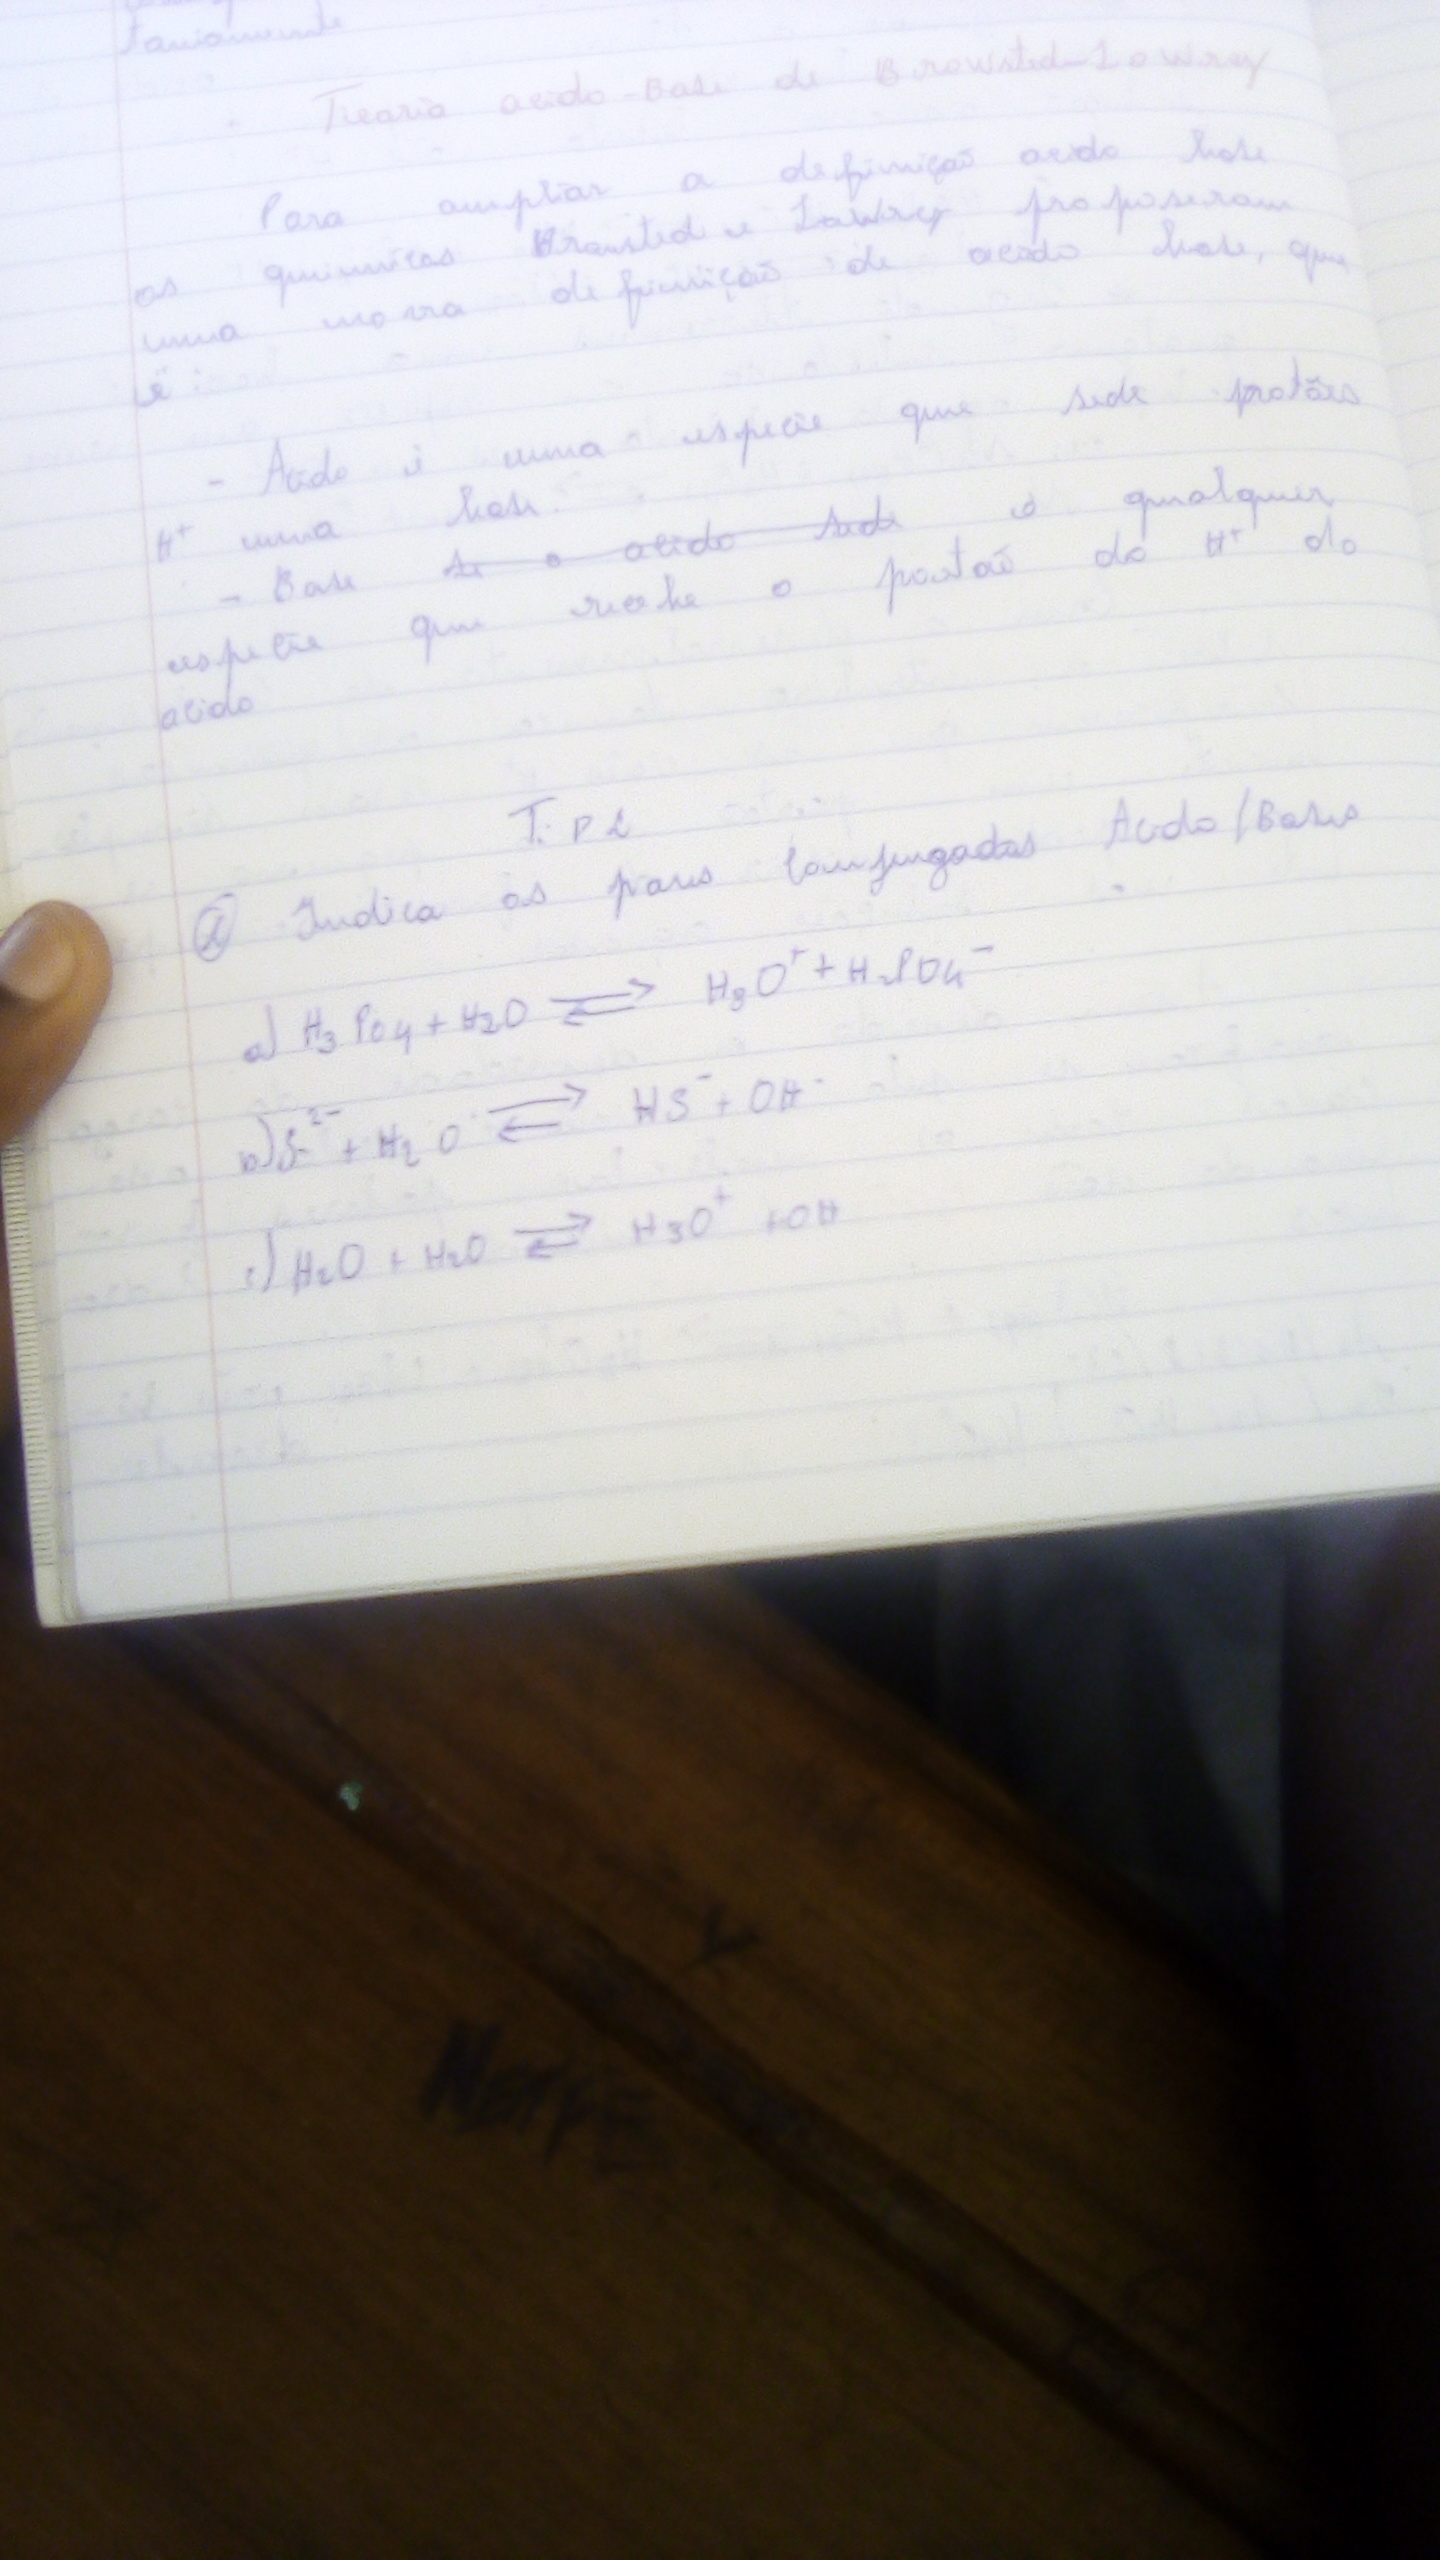 . Tiearia acido-Base de Browsted-Lowrey
Para ampliar a definição acido base
os quimicos Bronsted e Lowrey proposeram
uma nova definição de acido base, que
é:
- Acido é uma especie que sede protões
H⁺ uma base.
- Base se o acido sede é qualquer
especie que recebe o portão do H⁺ do
acido
T.P.C
① Indica os pares Conjugados Acido/Bases
a) H₃PO₄ + H₂O ⇌ H₃O⁺ + H₂PO₄⁻
b) S²⁻ + H₂O ⇌ HS⁻ + OH⁻
c) H₂O + H₂O ⇌ H₃O⁺ + OH